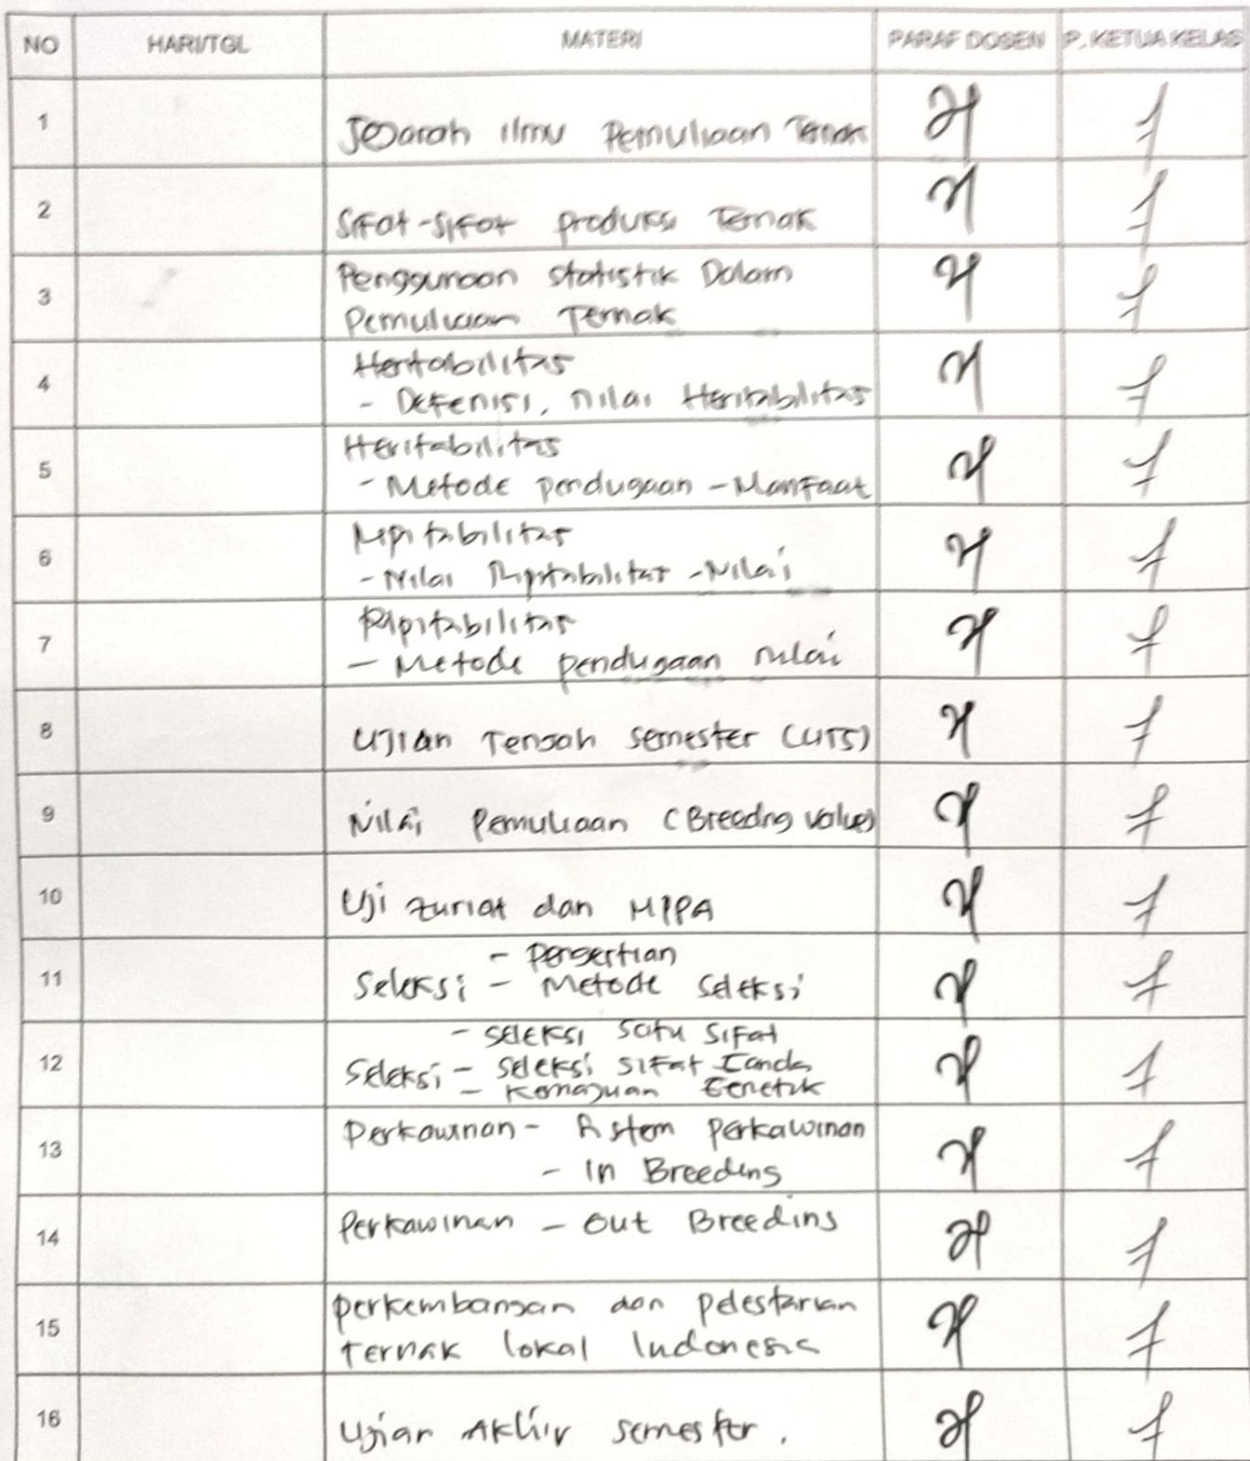 NO HARI/TGL MATERI PARAF DOSEN P. KETUA KELAS
1 Sejarah ilmu Pemuliaan Ternak
2 Sifat-sifat produksi Ternak
3 Penggunaan Statistik Dalam
Pemuliaan Ternak
4 Heritabilitas
- Defenisi, Nilai Heritabilitas
5 Heritabilitas
- Metode pendugaan - Manfaat
6 Ripitabilitas
- Nilai Ripitabilitas - Nilai
7 Ripitabilitas
- Metode pendugaan nilai
8 Ujian Tengah Semester (UTS)
9 Nilai Pemuliaan (Breeding value)
10 Uji zuriat dan MPPA
11 - Pengertian
Seleksi - Metode Seleksi
12 - Seleksi Satu Sifat
Seleksi - Seleksi Sifat Ganda
- Kemajuan Genetik
13 Perkawinan - Sistem perkawinan
- In Breeding
14 Perkawinan - Out Breeding
15 Perkembangan dan pelestarian
Ternak lokal Indonesia
16 Ujian Akhir semester.